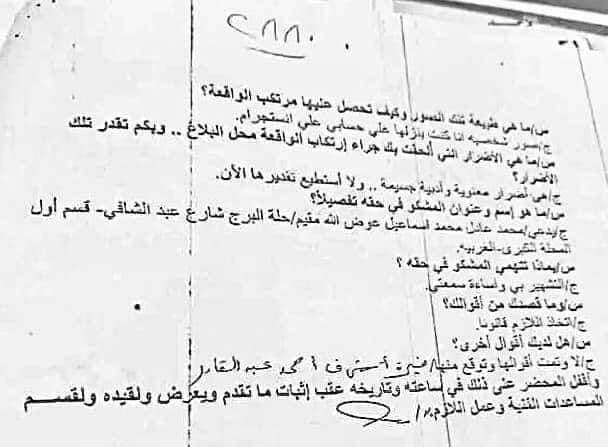 ٢٨٨٠
س/ما هي طبيعة تلك الصور وكيف تحصل عليها مرتكب الواقعة؟
ج/صور شخصيه انا كنت بنزلها علي حسابي علي انستجرام.
س/ما هي الأضرار التي ألحقت بك جراء إرتكاب الواقعة محل البلاغ .. وبكم تقدر تلك
الأضرار؟
ج/هي أضرار معنوية وأدبية جسيمة .. ولا أستطيع تقديرها الأن.
س/ما هو إسم وعنوان المشكو في حقه تفصيلاً؟
ج/يدعي/محمد عادل محمد اسماعيل عوض الله مقيم/حلة البرج شارع عبد الشافي- قسم أول
المحلة الكبرى-الغربيه.
س/بماذا تتهمي المشكو في حقه ؟
ج/التشهير بي وإساءة سمعتي.
س/وما قصدك من أقوالك؟
ج/اتخاذ اللازم قانونا.
س/هل لديك أقوال أخرى؟
ج/لا وتمت أقوالها وتوقع منها/ عبد القادر
وأقفل المحضر على ذلك في ساعته وتاريخه عقب إثبات ما تقدم ويعرض ولقيده ولقســـم
المساعدات الفنية وعمل اللازم.//